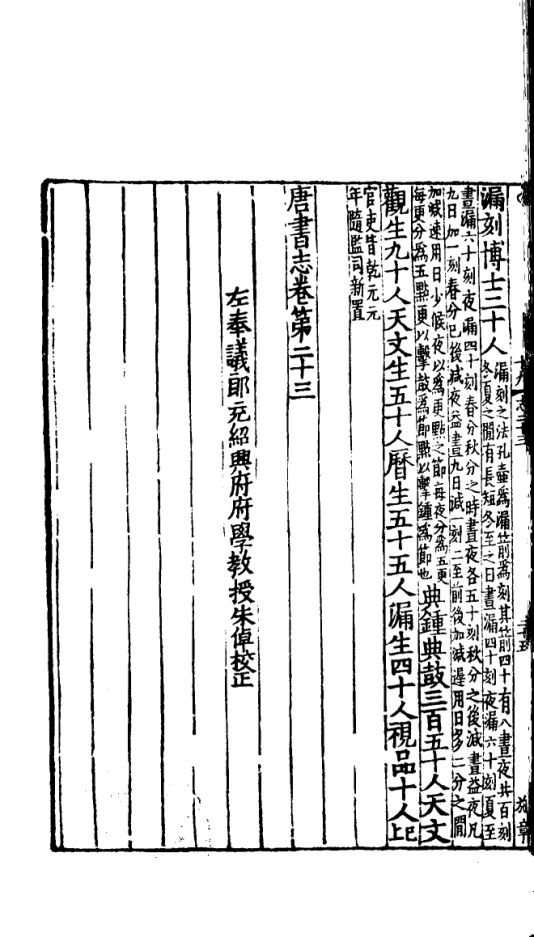 漏刻博士二十人
漏刻之法孔壺爲漏箭爲刻其箭四十有八晝夜共百刻
冬夏之間有長短冬至之日晝漏四十刻夜漏六十刻夏至
晝漏六十刻夜漏四十刻春分秋分之時晝夜各五十刻秋分之後減晝益夜凡
九日加一刻春分已後減夜益晝九日減一刻二至前後加減遲用日多二分之間
加減速用日少候夜以爲更點之節每夜分爲五更
每更分爲五點更以擊鼓爲節點以擊鍾爲節也
典鍾典鼓三百五十人天文
觀生九十人天文生五十人曆生五十五人漏生四十人視品十人上已
官吏皆乾元元
年隨監司新置
唐書志卷第二十三
左奉議郎充紹興府府學教授朱倬校正